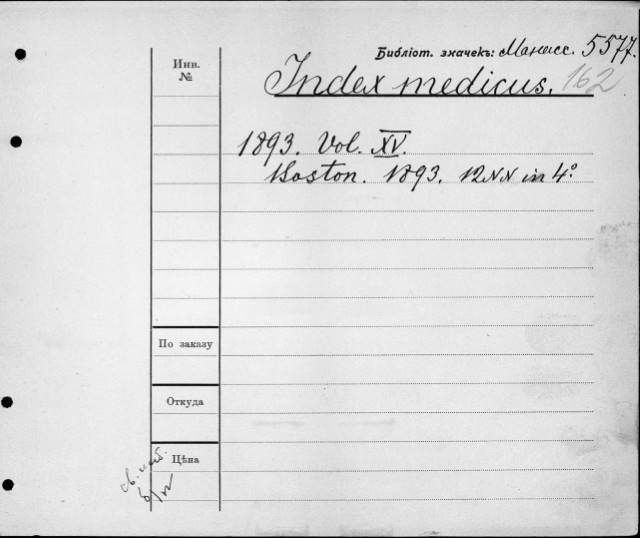 Библіот. значекъ: Манасс. 5577.
Инв.
№
Index medicus. 162
1893. Vol. XV.
Boston. 1893. 12 NN in 4°
По заказу
Откуда
Цѣна